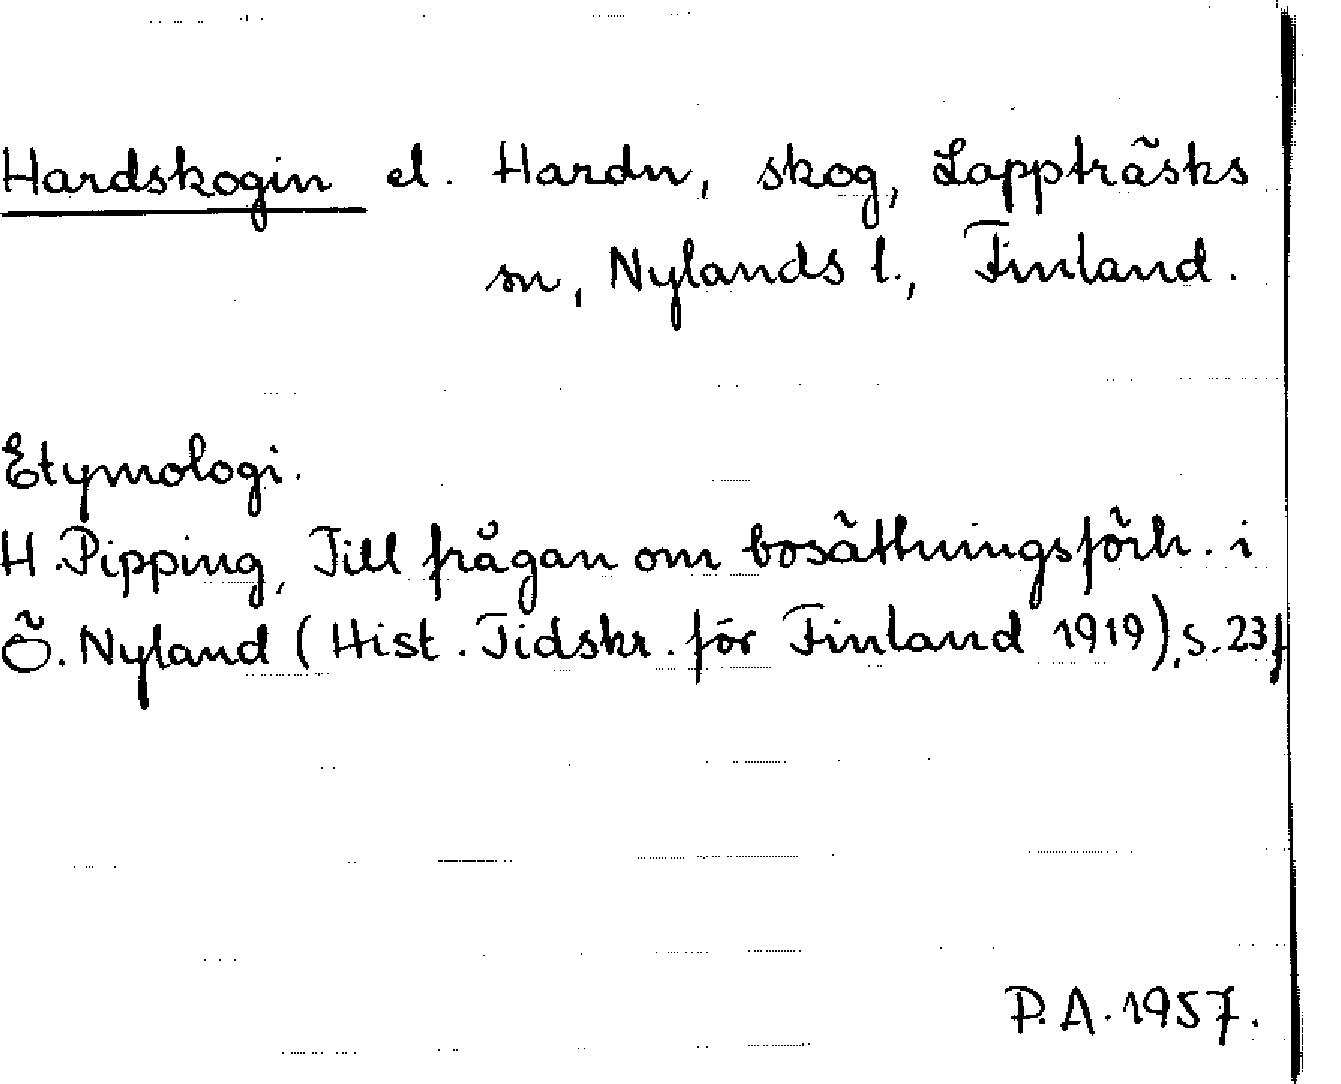 Hardskogin el. Hardn, skog, Lappträsks
sn, Nylands l., Finland.
Etymologi.
H. Pipping, Till frågan om bosättningsförh. i
Ö. Nyland (Hist. Tidskr. för Finland 1919), s. 23f
P.A. 1957.